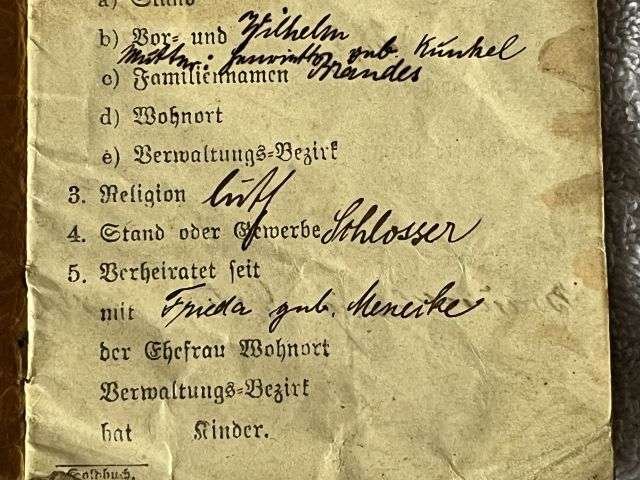 a) Stand
b) Vor- und Wilhelm
Mutter: Henriette geb. Kunkel
c) Familiennamen Brandes
d) Wohnort
e) Verwaltungs-Bezirk
3. Religion luth
4. Stand oder Gewerbe Schlosser
5. Verheiratet seit
mit Frieda geb. Menecke
der Ehefrau Wohnort
Verwaltungs-Bezirk
hat Kinder.
Soldbuch.